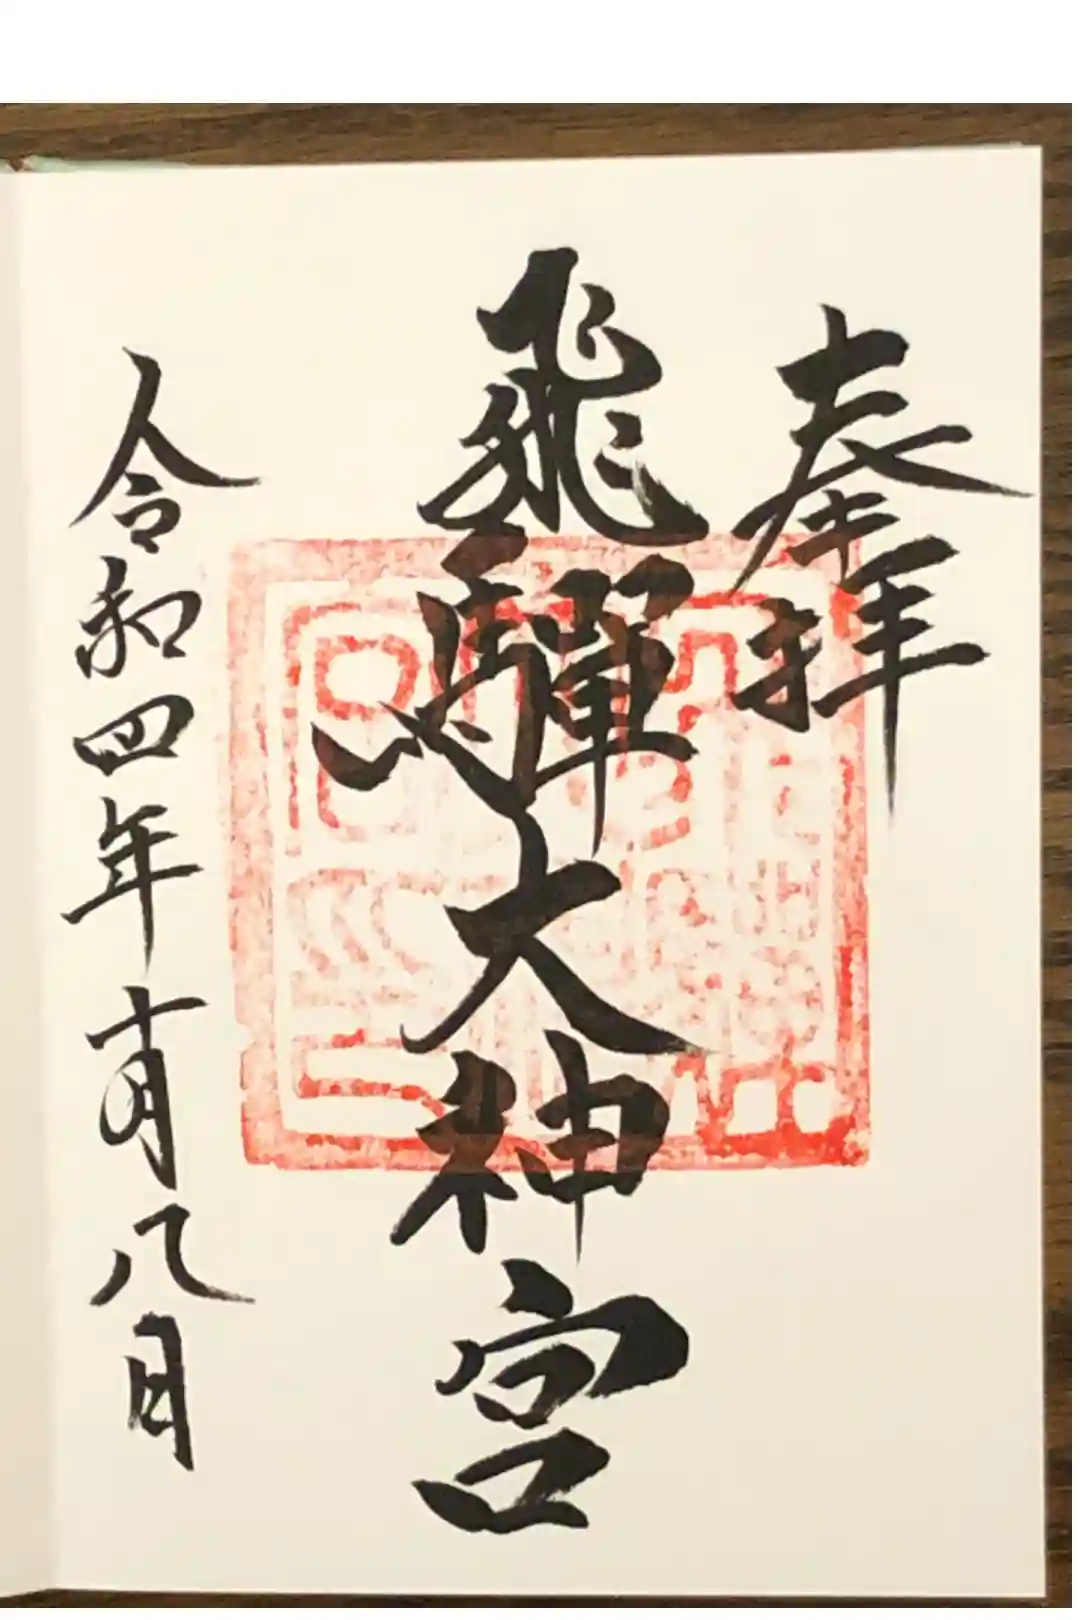 奉拝
飛騨大神宮
令和四年十月八日